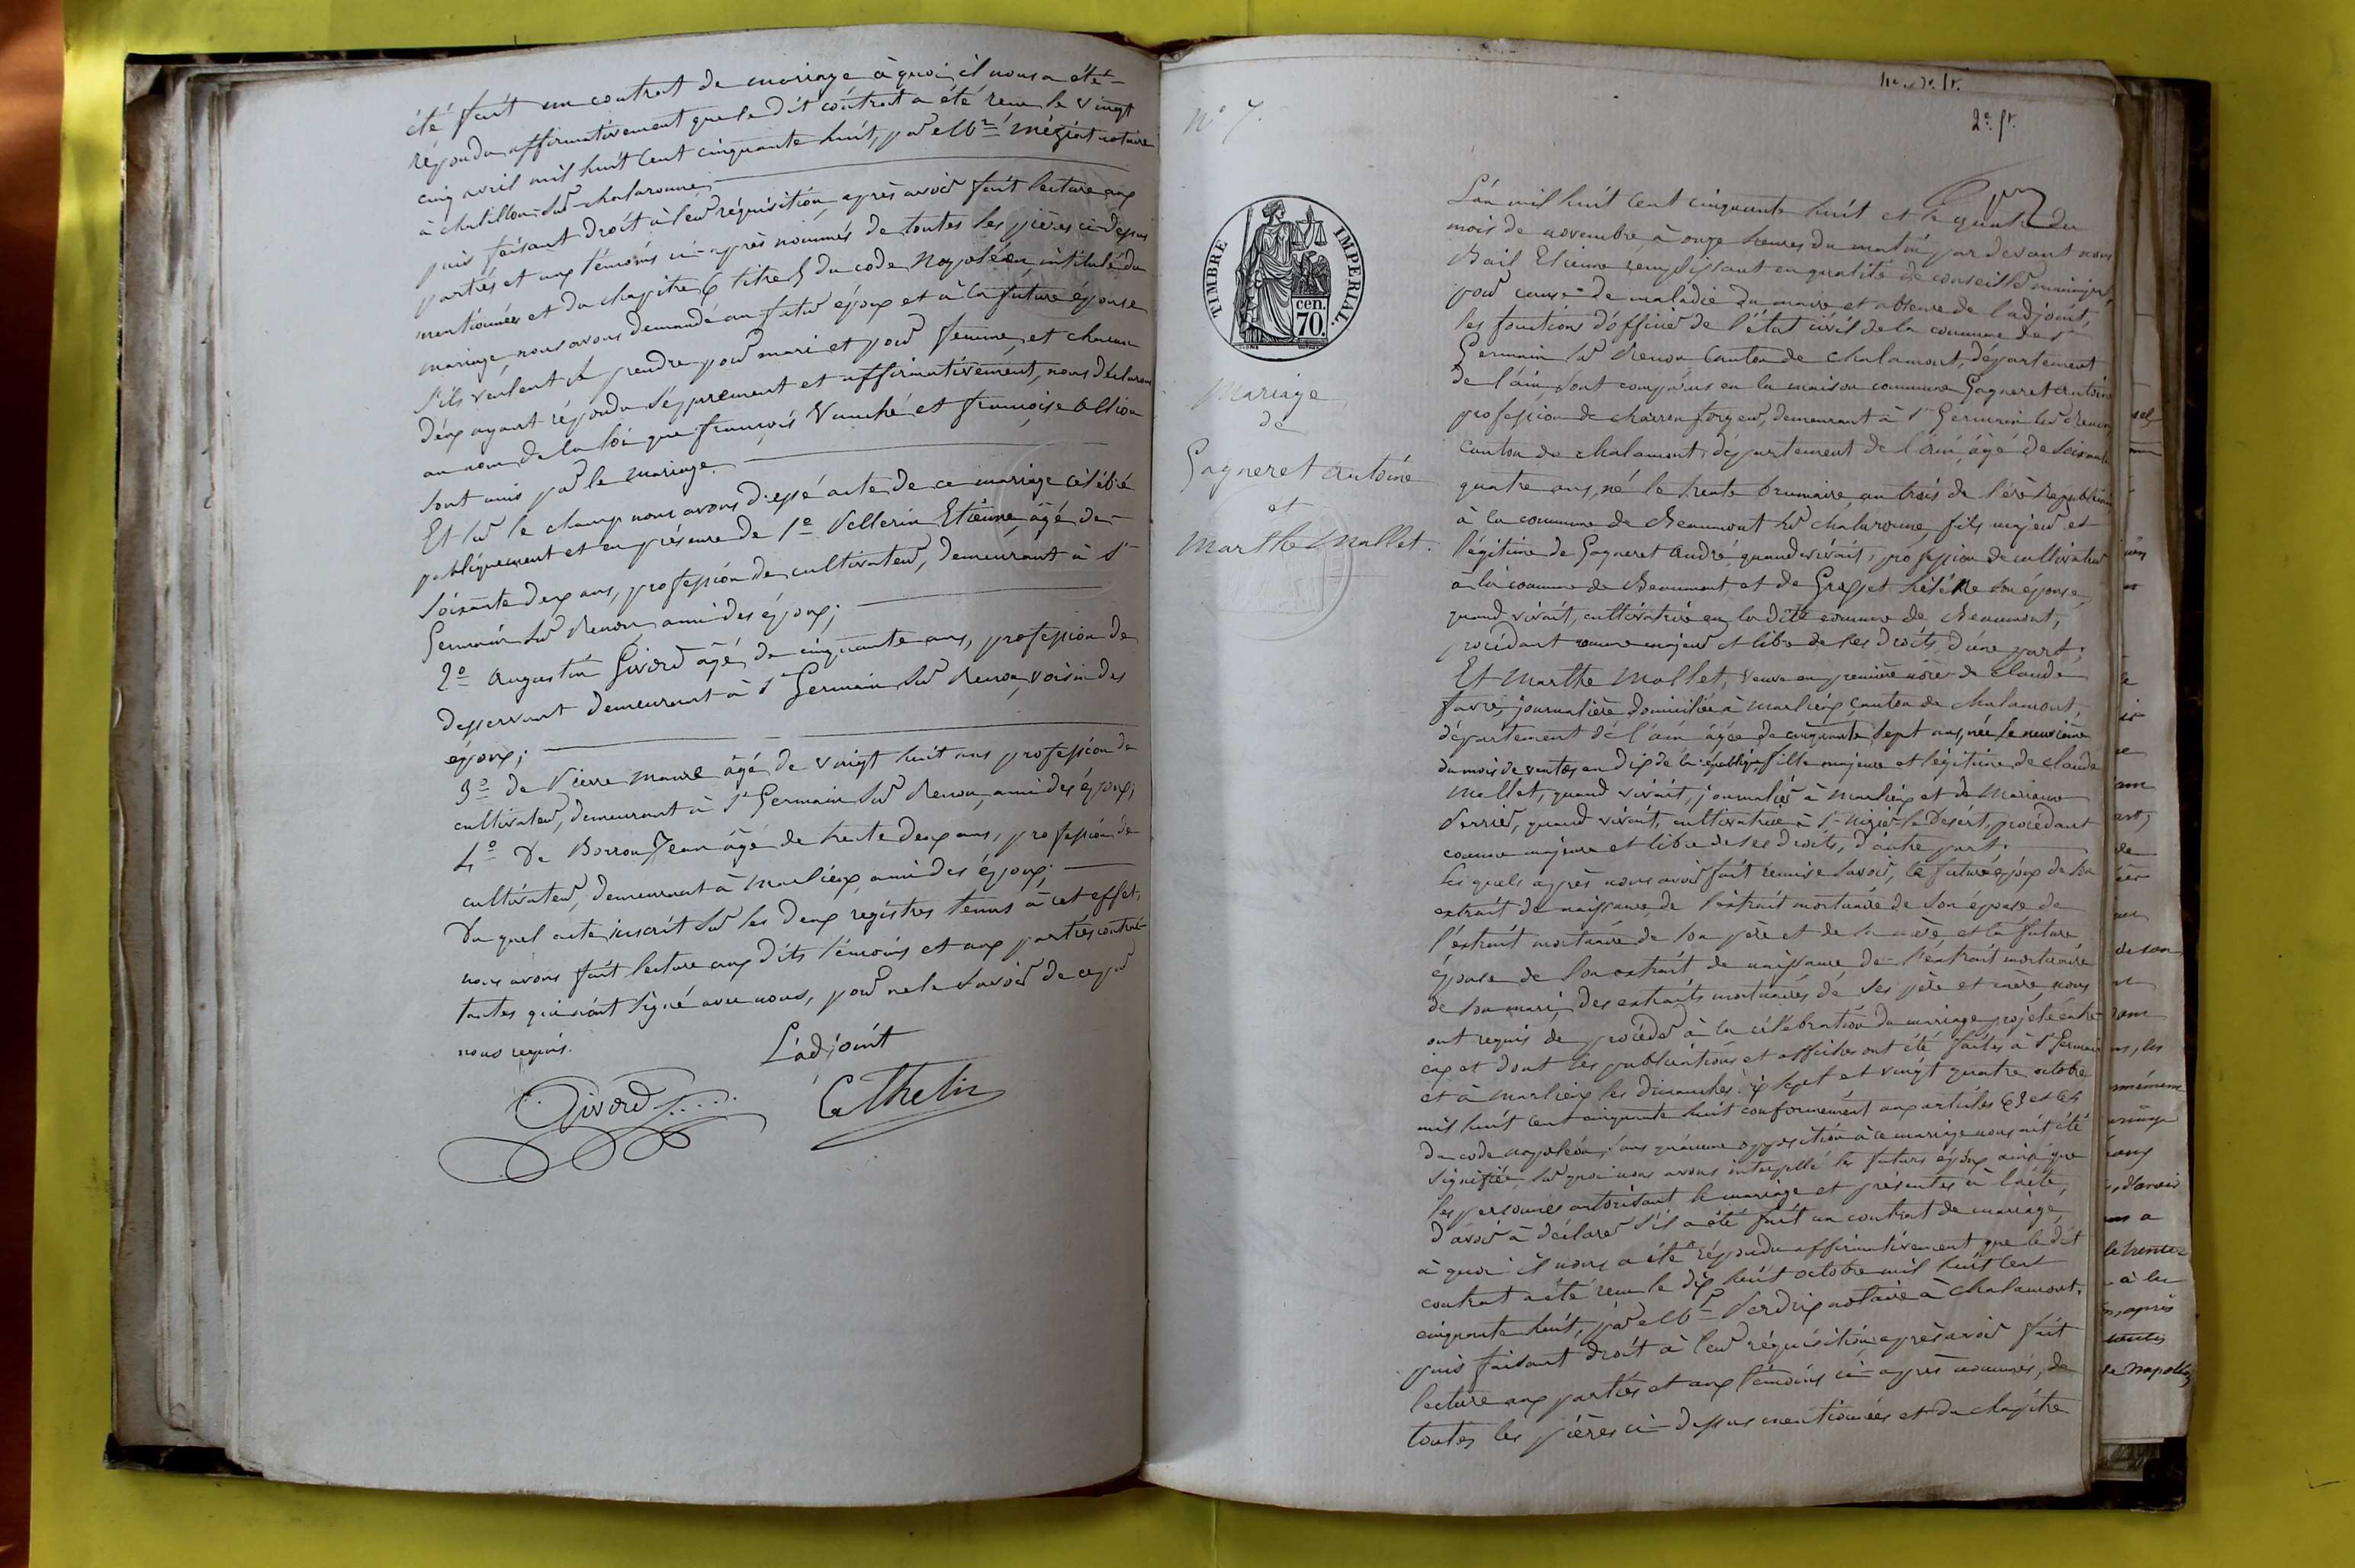 été fait un contrat de mariage à quoi il nous a été
répondu affirmativement que le dit contrat a été reçu le vingt
cinq avril mil huit cent cinquante huit, par Me notaire
à chatillon sur chalaronne
puis faisant droit à leur réquisition, après avoir fait lecture aux
parties et aux témoins ci-après nommés de toutes les pièces ci-dessus
mentionnées et du chapitre 6 titre 5 du code Napoléon, intitulé du
mariage, nous avons demandé au futur époux et à la future épouse
s'ils veulent se prendre pour mari et pour femme, et chacun
d'eux ayant répondu séparément et affirmativement, nous déclarons
au nom de la loi que françois Vauché et françoise
sont unis par le mariage.
Et sur le champ nous avons dressé acte de ce mariage célébré
publiquement et en présence de 1º Pellerin Etienne, âgé de
soixante deux ans, profession de cultivateur, demeurant à St
Germain sur Renon ami des époux;
2º Augustin Givord âgé de cinquante ans, profession de
desservant demeurant à St Germain sur Renon, voisin des
époux;
3º de Pierre Maurel âgé de vingt huit ans profession de
cultivateur, demeurant à St Germain sur Renon, ami des époux;
4º De Borron Jean âgé de trente deux ans, profession de
cultivateur, demeurant à Marlieux ami des époux;
Du quel acte inscrit sur les deux registres tenus à cet effet,
nous avons fait lecture aux dits témoins et aux parties contrac-
tantes qui n'ont signé avec nous, pour ne le savoir de ce par
nous requis.
L'adjoint
Givord
Cathelin
2e. fr.
Nº 7.
TIMBRE IMPERIAL.
cen.
70.
Mariage
de
Gagneret Antoine
et
Marthe Mallet.
L'an mil huit cent cinquante huit et le quatre du
mois de novembre, à onze heures du matin, par devant nous
Bail Etienne remplissant en qualité de conseiller municipal,
pour cause de maladie du maire et absence de l'adjoint,
les fonctions d'officier de l'état civil de la commune de St
Germain sur Renon Canton de Chalamont, département
de l'ain, sont comparus en la maison commune Gagneret Antoine
profession de forgeur, demeurant à St Germain sur Renon,
canton de chalamont, département de l'ain, âgé de soixante
quatre ans, né le trente brumaire, an trois de l'ère Républicaine
à la commune de Beaumont sur chalaronne, fils majeur et
légitime de Gagneret André, quand vivait, profession de cultivateur
à la commune de Beaumont, et de Hélène son épouse,
quand vivait, cultivatrice en la dite commune de Beaumont,
procédant comme majeur et libre de ses droits, d'une part;
Et Marthe Mallet, veuve en première noce de Claude
favre, journalière domiciliée à Marlieux, canton de chalamont,
département de l'ain âgée de cinquante sept ans, née le neuvième
du mois de ventose an dix de la république fille majeure et légitime de claude
Mallet, quand vivait, journalier à Marlieux et de Marianne
Perrier, quand vivait, cultivatrice à St Nizier le Desert, procédant
comme majeure et libre de ses droits, d'autre part.
Les quels après nous avoir fait remise savoir, le futur époux de son
extrait de naissance, de l'extrait mortuaire de son épouse de
l'extrait mortuaire de son père et de sa mère, et la future
épouse de son extrait de naissance de l'extrait mortuaire
de son mari, des extraits mortuaires de ses père et mère, nous
ont requis de procéder à la célébration du mariage projeté entre
eux et dont les publications et affiches ont été faites à St Germain
et à Marlieux les dimanches dix sept et vingt quatre octobre
mil huit cent cinquante huit conformément aux articles 63 et 64
du code Napoléon, sans qu'aucune opposition à ce mariage nous ait été
signifiée, sur quoi nous avons interpellé les futurs époux ainsi que
les personnes autorisant le mariage et présentes à l'acte,
d'avoir à déclarer s'il a été fait un contrat de mariage,
à quoi il nous a été répondu affirmativement que le dit
contrat a été reçu le dix huit octobre mil huit cent
cinquante huit, par Me Perdrix notaire à Chalamont.
puis faisant droit à leur réquisition, après avoir fait
lecture aux parties et aux témoins ci-après nommés, de
toutes les pièces ci-dessus mentionnées et du chapitre